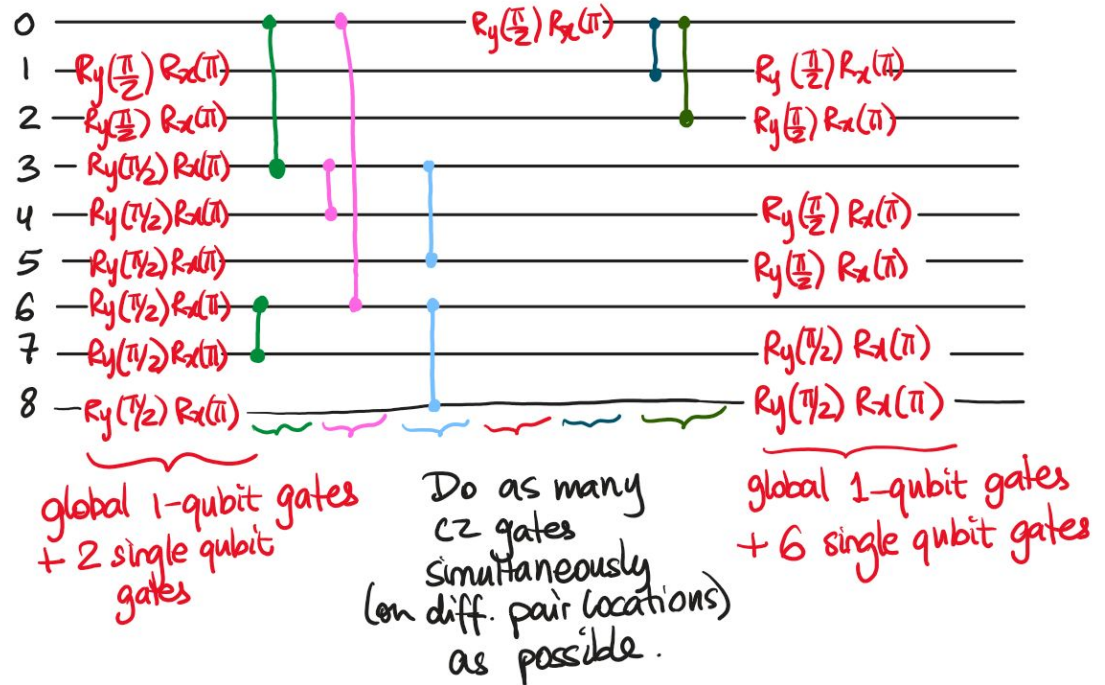 0 Ry(π/2) Rx(π)
1 Ry(π/2) Rx(π) Ry(π/2) Rx(π)
2 Ry(π/2) Rx(π) Ry(π/2) Rx(π)
3 Ry(π/2) Rx(π)
4 Ry(π/2) Rx(π) Ry(π/2) Rx(π)
5 Ry(π/2) Rx(π) Ry(π/2) Rx(π)
6 Ry(π/2) Rx(π)
7 Ry(π/2) Rx(π) Ry(π/2) Rx(π)
8 Ry(π/2) Rx(π) Ry(π/2) Rx(π)
global 1-qubit gates
+ 2 single qubit
gates
Do as many
CZ gates
simultaneously
(on diff. pair locations)
as possible.
global 1-qubit gates
+ 6 single qubit gates